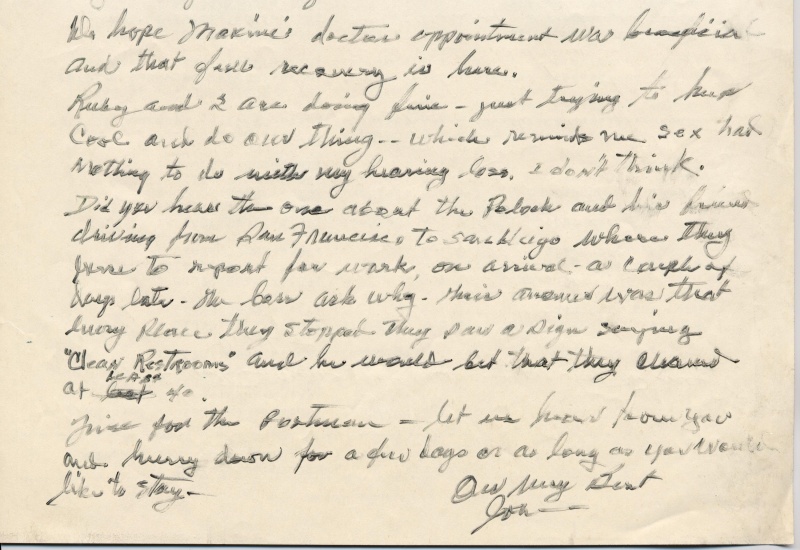 We hope Maxine's doctor appointment was beneficial
and that full recovery is here.
Ruby and I are doing fine - just trying to keep
Cool and do our thing -- which reminds me sex had
nothing to do with my hearing loss, I don't think.
Did you hear the one about the Polock and his friend
driving from San Francisco to San Diego where they
were to report for work, on arrival - a couple of
days late - the boss ask why - their answer was that
every place they stopped they saw a sign saying
"Clean Restrooms" and he would bet that they cleaned
at least 40.
Time for the Postman - let us hear from you
and hurry down for a few days or as long as you would
like to stay -
Our Very Best
Jon --